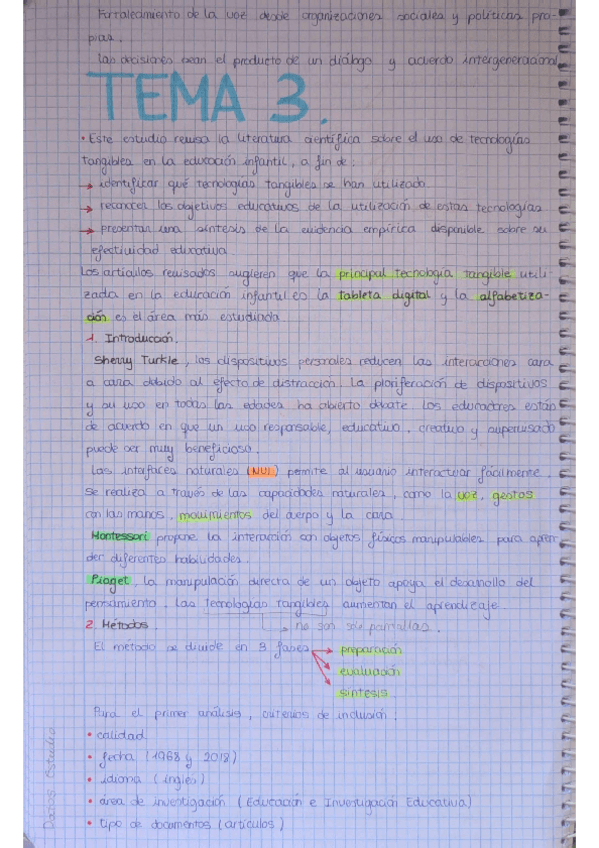 Fortalecimiento de la voz desde organizaciones sociales y políticas pro-
pias.
Las decisiones sean el producto de un diálogo y acuerdo intergeneracional
TEMA 3.
• Este estudio revisa la literatura científica sobre el uso de tecnologías
tangibles en la educación infantil, a fin de:
→ identificar qué tecnologías tangibles se han utilizado.
→ reconocer los objetivos educativos de la utilización de estas tecnologías
→ presentar una síntesis de la evidencia empírica disponible sobre su
efectividad educativa
Los artículos revisados sugieren que la principal tecnología tangible utili-
zada en la educación infantil es la tableta digital y la alfabetiza-
ción es el área más estudiada
1. Introducción.
Sherry Turkle, los dispositivos personales reducen las interacciones cara
a cara debido al efecto de distracción. La proliferación de dispositivos
y su uso en todas las edades ha abierto debate. Los educadores están
de acuerdo en que un uso responsable, educativo, creativo y supervisado
puede ser muy beneficioso.
Las interfaces naturales (NUI) permite al usuario interactuar fácilmente.
Se realiza a través de las capacidades naturales, como la voz, gestos
con las manos, movimientos del cuerpo y la cara.
Montessori propone la interacción con objetos físicos manipulables para apren
der diferentes habilidades.
Piaget, la manipulación directa de un objeto apoya el desarrollo del
pensamiento. Las tecnologías tangibles aumentan el aprendizaje.
2. Métodos. → no son solo pantallas.
El método se divide en 3 fases → preparación
→ evaluación
→ síntesis
Para el primer análisis, criterios de inclusión:
• calidad
• fecha (1968 y 2018)
• idioma (inglés)
• área de investigación (Educación e Investigación Educativa)
• tipo de documentos (artículos)
Datos Estudio